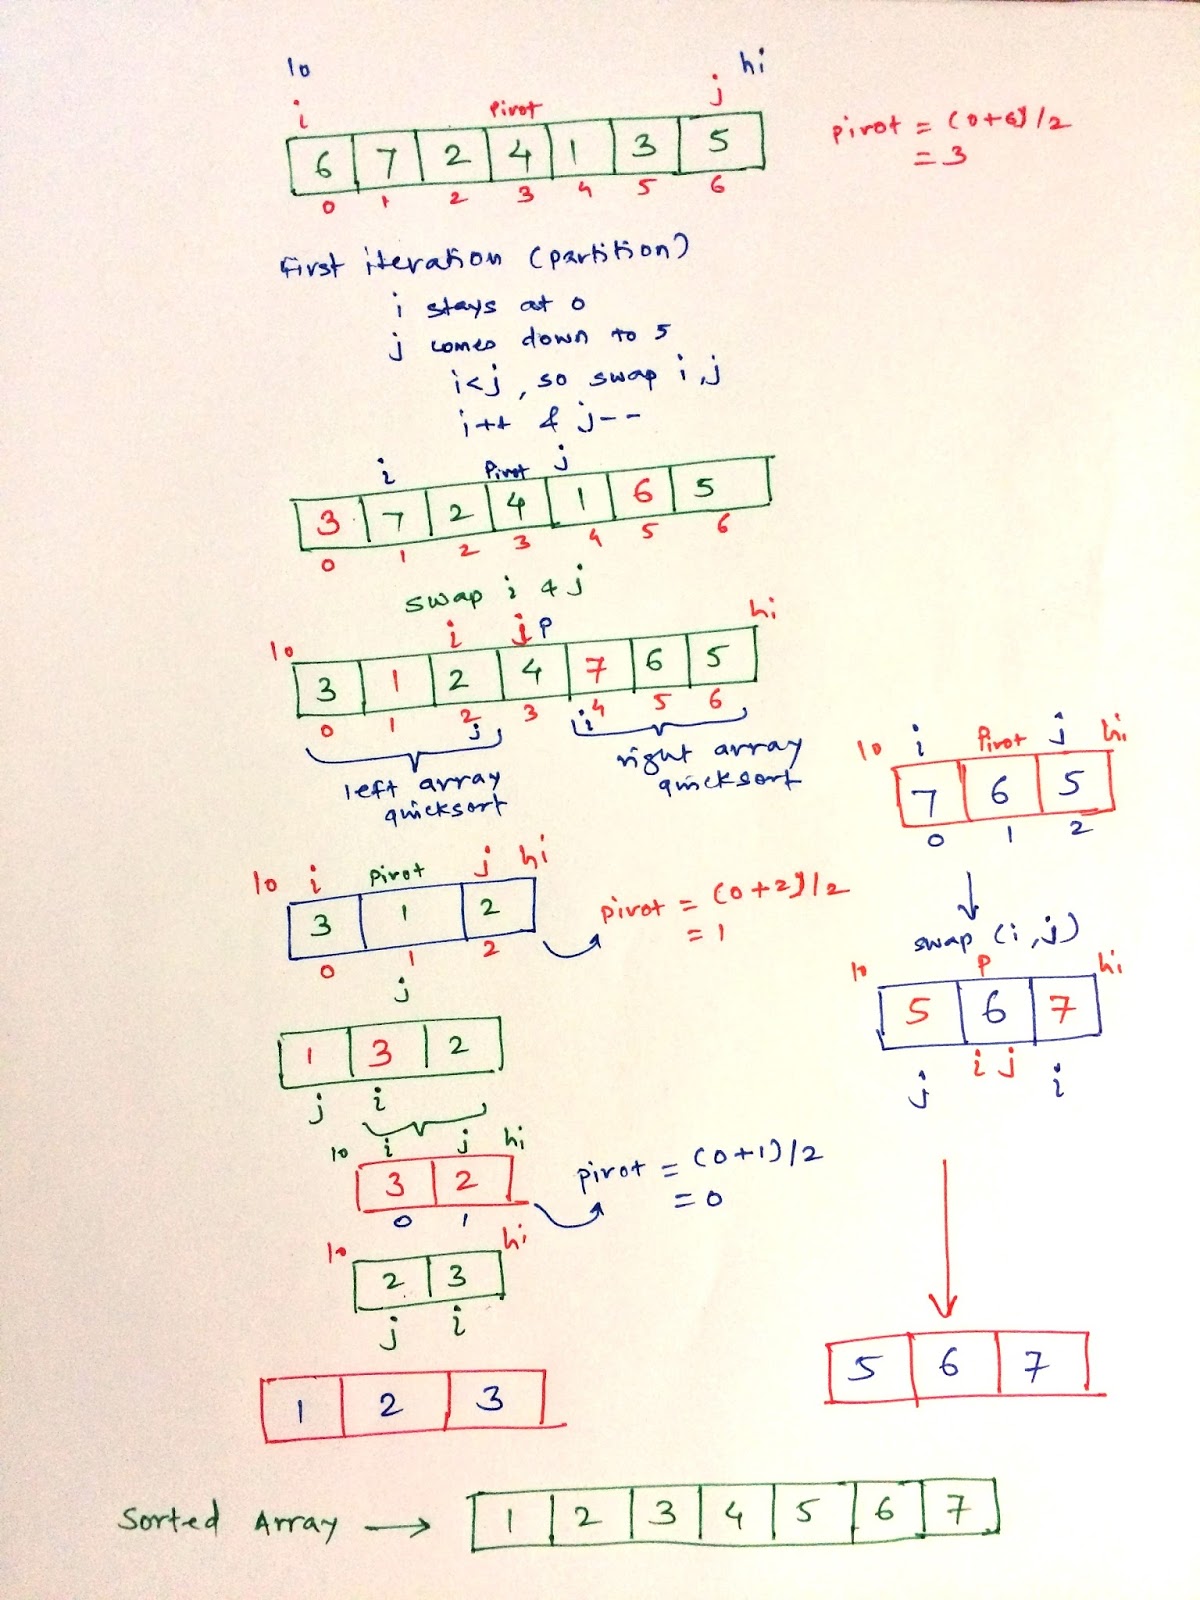 lo hi
i Pivot j
6 7 2 4 1 3 5
0 1 2 3 4 5 6
pivot = (0+6)/2
= 3
First iteration (partition)
i stays at 0
j comes down to 5
i<j, so swap i,j
i++ & j--
i Pivot j
3 7 2 4 1 6 5
0 1 2 3 4 5 6
swap i & j
lo i j P hi
3 1 2 4 7 6 5
0 1 2 3 4 5 6
j i
left array
quicksort
right array
quicksort
lo i Pivot j hi
7 6 5
0 1 2
swap (i,j)
lo P hi
5 6 7
i j
j i
5 6 7
lo i pivot j hi
3 1 2
0 1 2
j
pivot = (0+2)/2
= 1
1 3 2
j i
lo i j hi
3 2
0 1
pivot = (0+1)/2
= 0
lo hi
2 3
j i
1 2 3
Sorted Array → 1 2 3 4 5 6 7